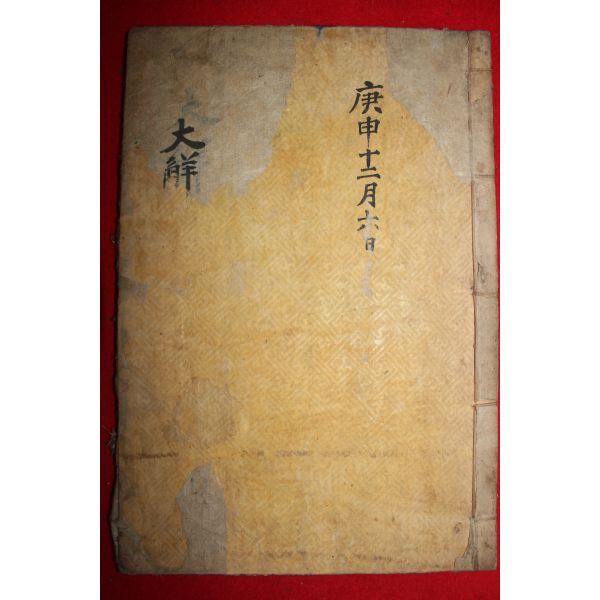 庚申十二月六日
大解